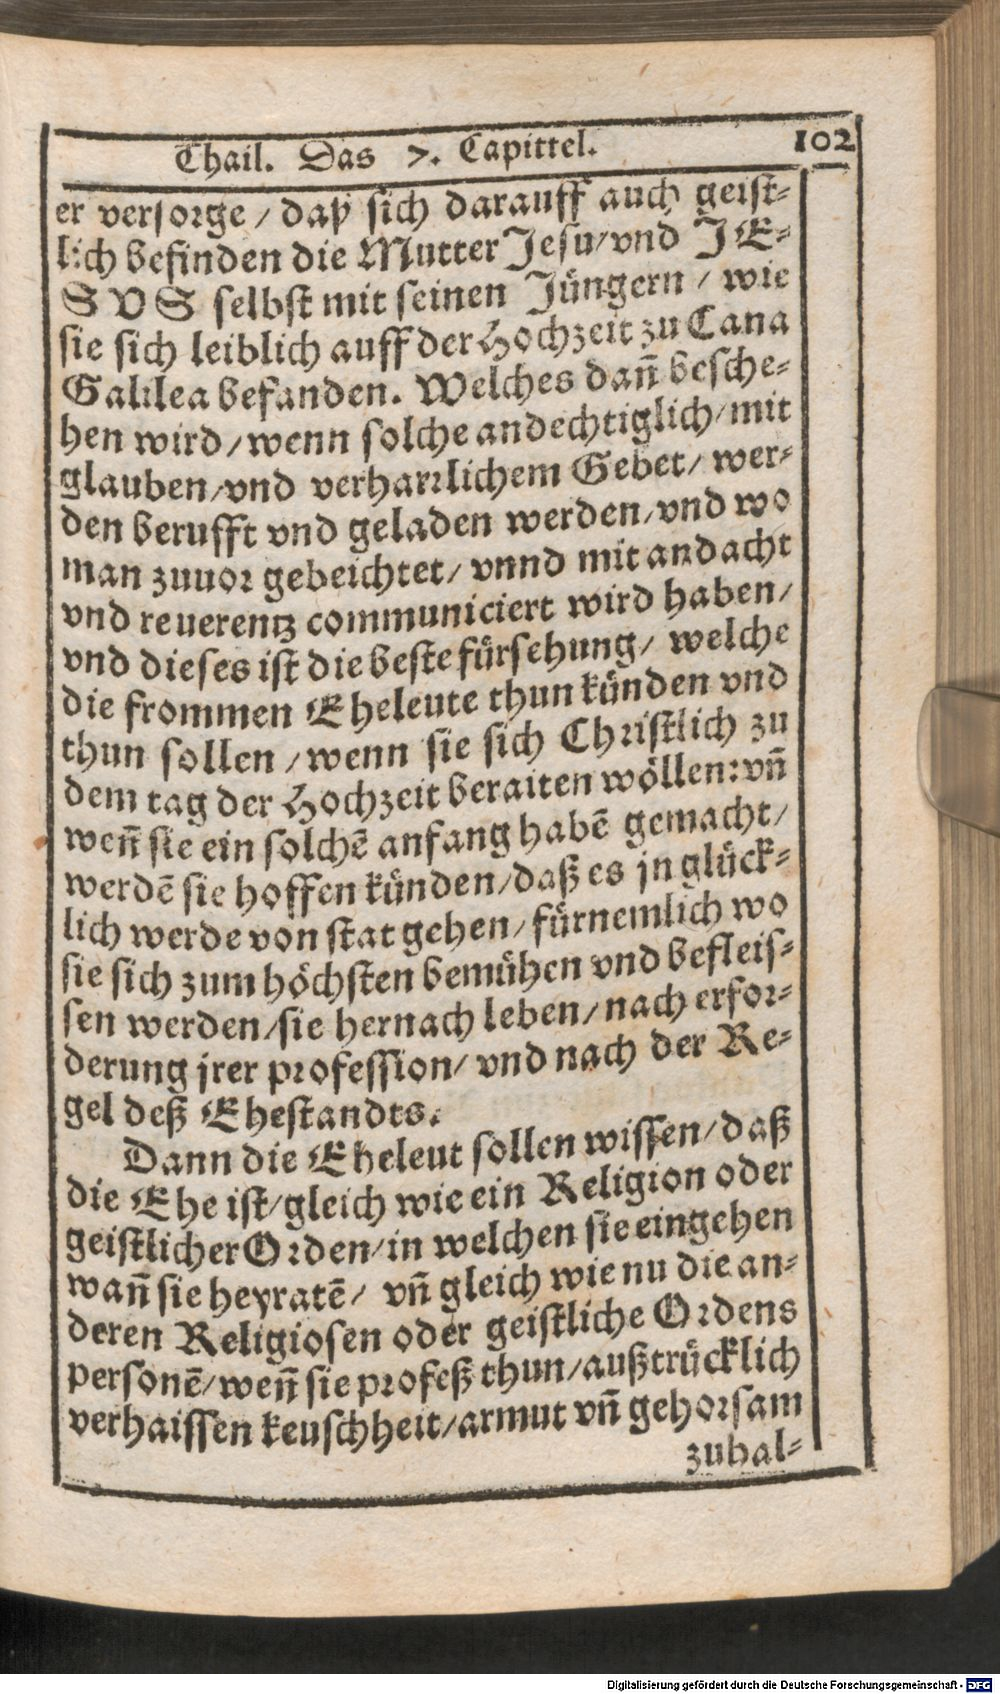 Thail. Das 7. Capittel. 102
er versorge / daß sich darauff auch geist-
lich befinden die Mutter Jesu/vnd JE-
SVS selbst mit seinen Jüngern / wie
sie sich leiblich auff der Hochzeit zu Cana
Galilea befanden. Welches dañ besche-
hen wird/wenn solche andechtiglich/mit
glauben/vnd verharrlichem Gebet/ wer-
den berufft vnd geladen werden/vnd wo
man zuuor gebeichtet/ vnnd mit andacht
vnd reuerentz communiciert wird haben/
vnd dieses ist die beste fürsehung/ welche
die frommen Eheleute thun künden vnd
thun sollen /wenn sie sich Christlich zu
dem tag der Hochzeit beraiten wöllen: vñ
weñ sie ein solchẽ anfang habẽ gemacht/
werdẽ sie hoffen künden/daß es jn glück-
lich werde von stat gehen/fürnemlich wo
sie sich zum höchsten bemühen vnd befleis-
sen werden/sie hernach leben/nach erfor-
derung jrer profession/ vnd nach der Re-
gel deß Ehestandts.
Dann die Eheleut sollen wissen/daß
die Ehe ist/gleich wie ein Religion oder
geistlicher Orden/in welchen sie eingehen
wañ sie heyratẽ/ vñ gleich wie nu die an-
deren Religiosen oder geistliche Ordens
personẽ/weñ sie profeß thun/außtrücklich
verhaissen keuschheit/armut vñ gehorsam
zuhal-
Digitalisierung gefördert durch die Deutsche Forschungsgemeinschaft - DFG